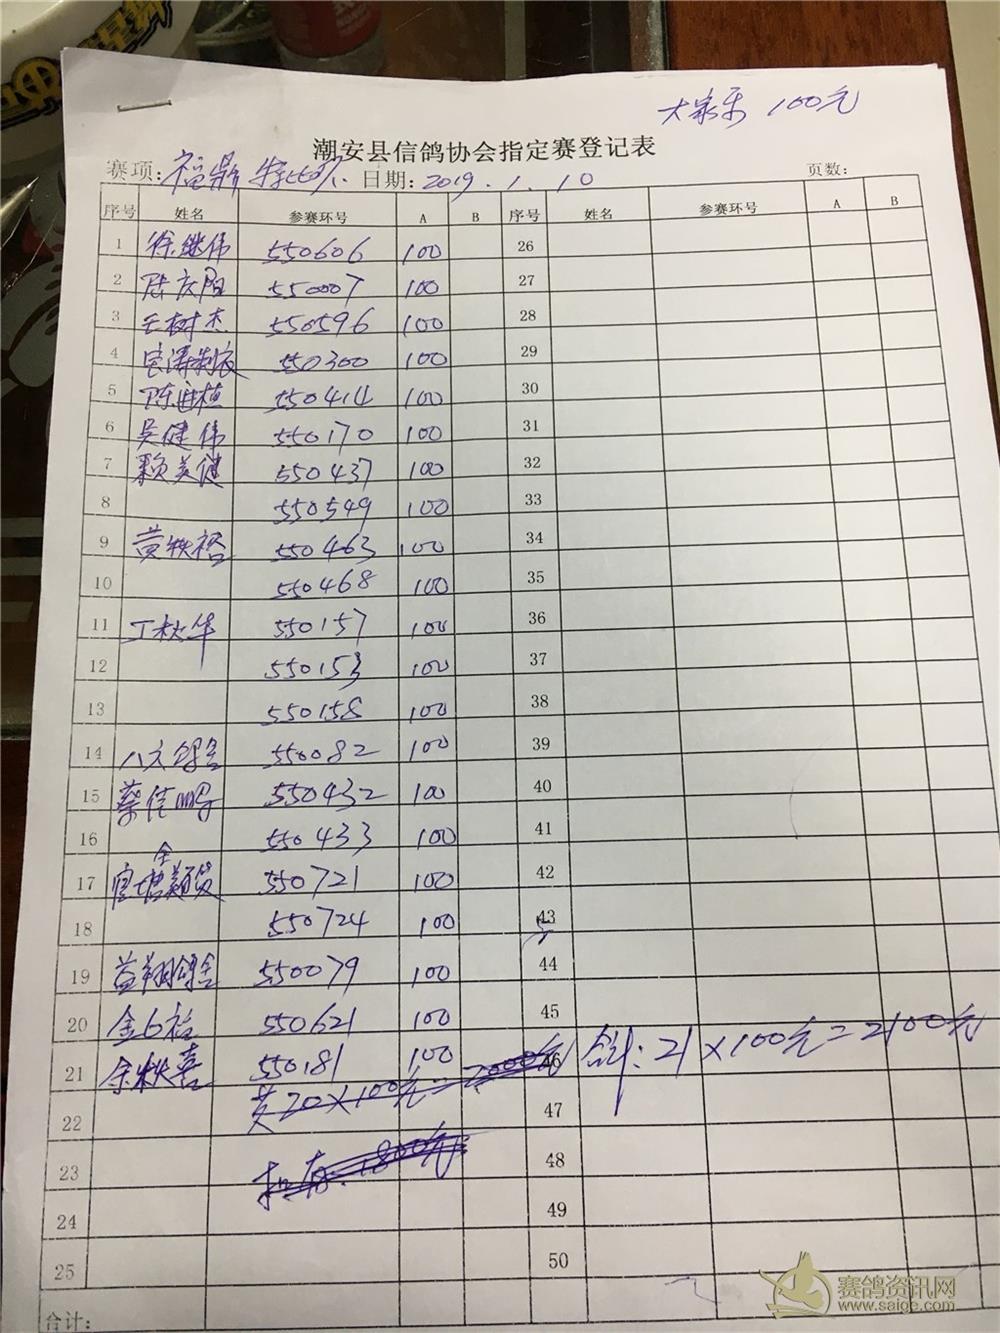 大家乐 100元
潮安县信鸽协会指定赛登记表
赛项: 福鼎特比环 日期: 2019.1.10 页数:
序号 姓名 参赛环号 A B 序号 姓名 参赛环号 A B
1 徐继伟 550606 100 26
2 陆庆阳 550007 100 27
3 王树杰 550596 100 28
4 宝涛制衣 550300 100 29
5 陈 植 550414 100 30
6 吴健伟 550170 100 31
7 美健 550437 100 32
8 550549 100 33
9 黄 裕 550463 100 34
10 550468 100 35
11 丁秋华 550157 100 36
12 550153 100 37
13 550158 100 38
14 八六鸽舍 550082 100 39
15 蔡佳鹏 550432 100 40
16 550433 100 41
17 官塘 550721 100 42
18 550724 100 43
19 益翔鸽舍 550079 100 44
20 金 550621 100 45
21 余秋喜 550181 100 46 合计: 21×100元=2100元
22 共20×100元=2000元 47
23 1800元 48
24 49
25 50
合计:
赛鸽资讯网
www.saige.com